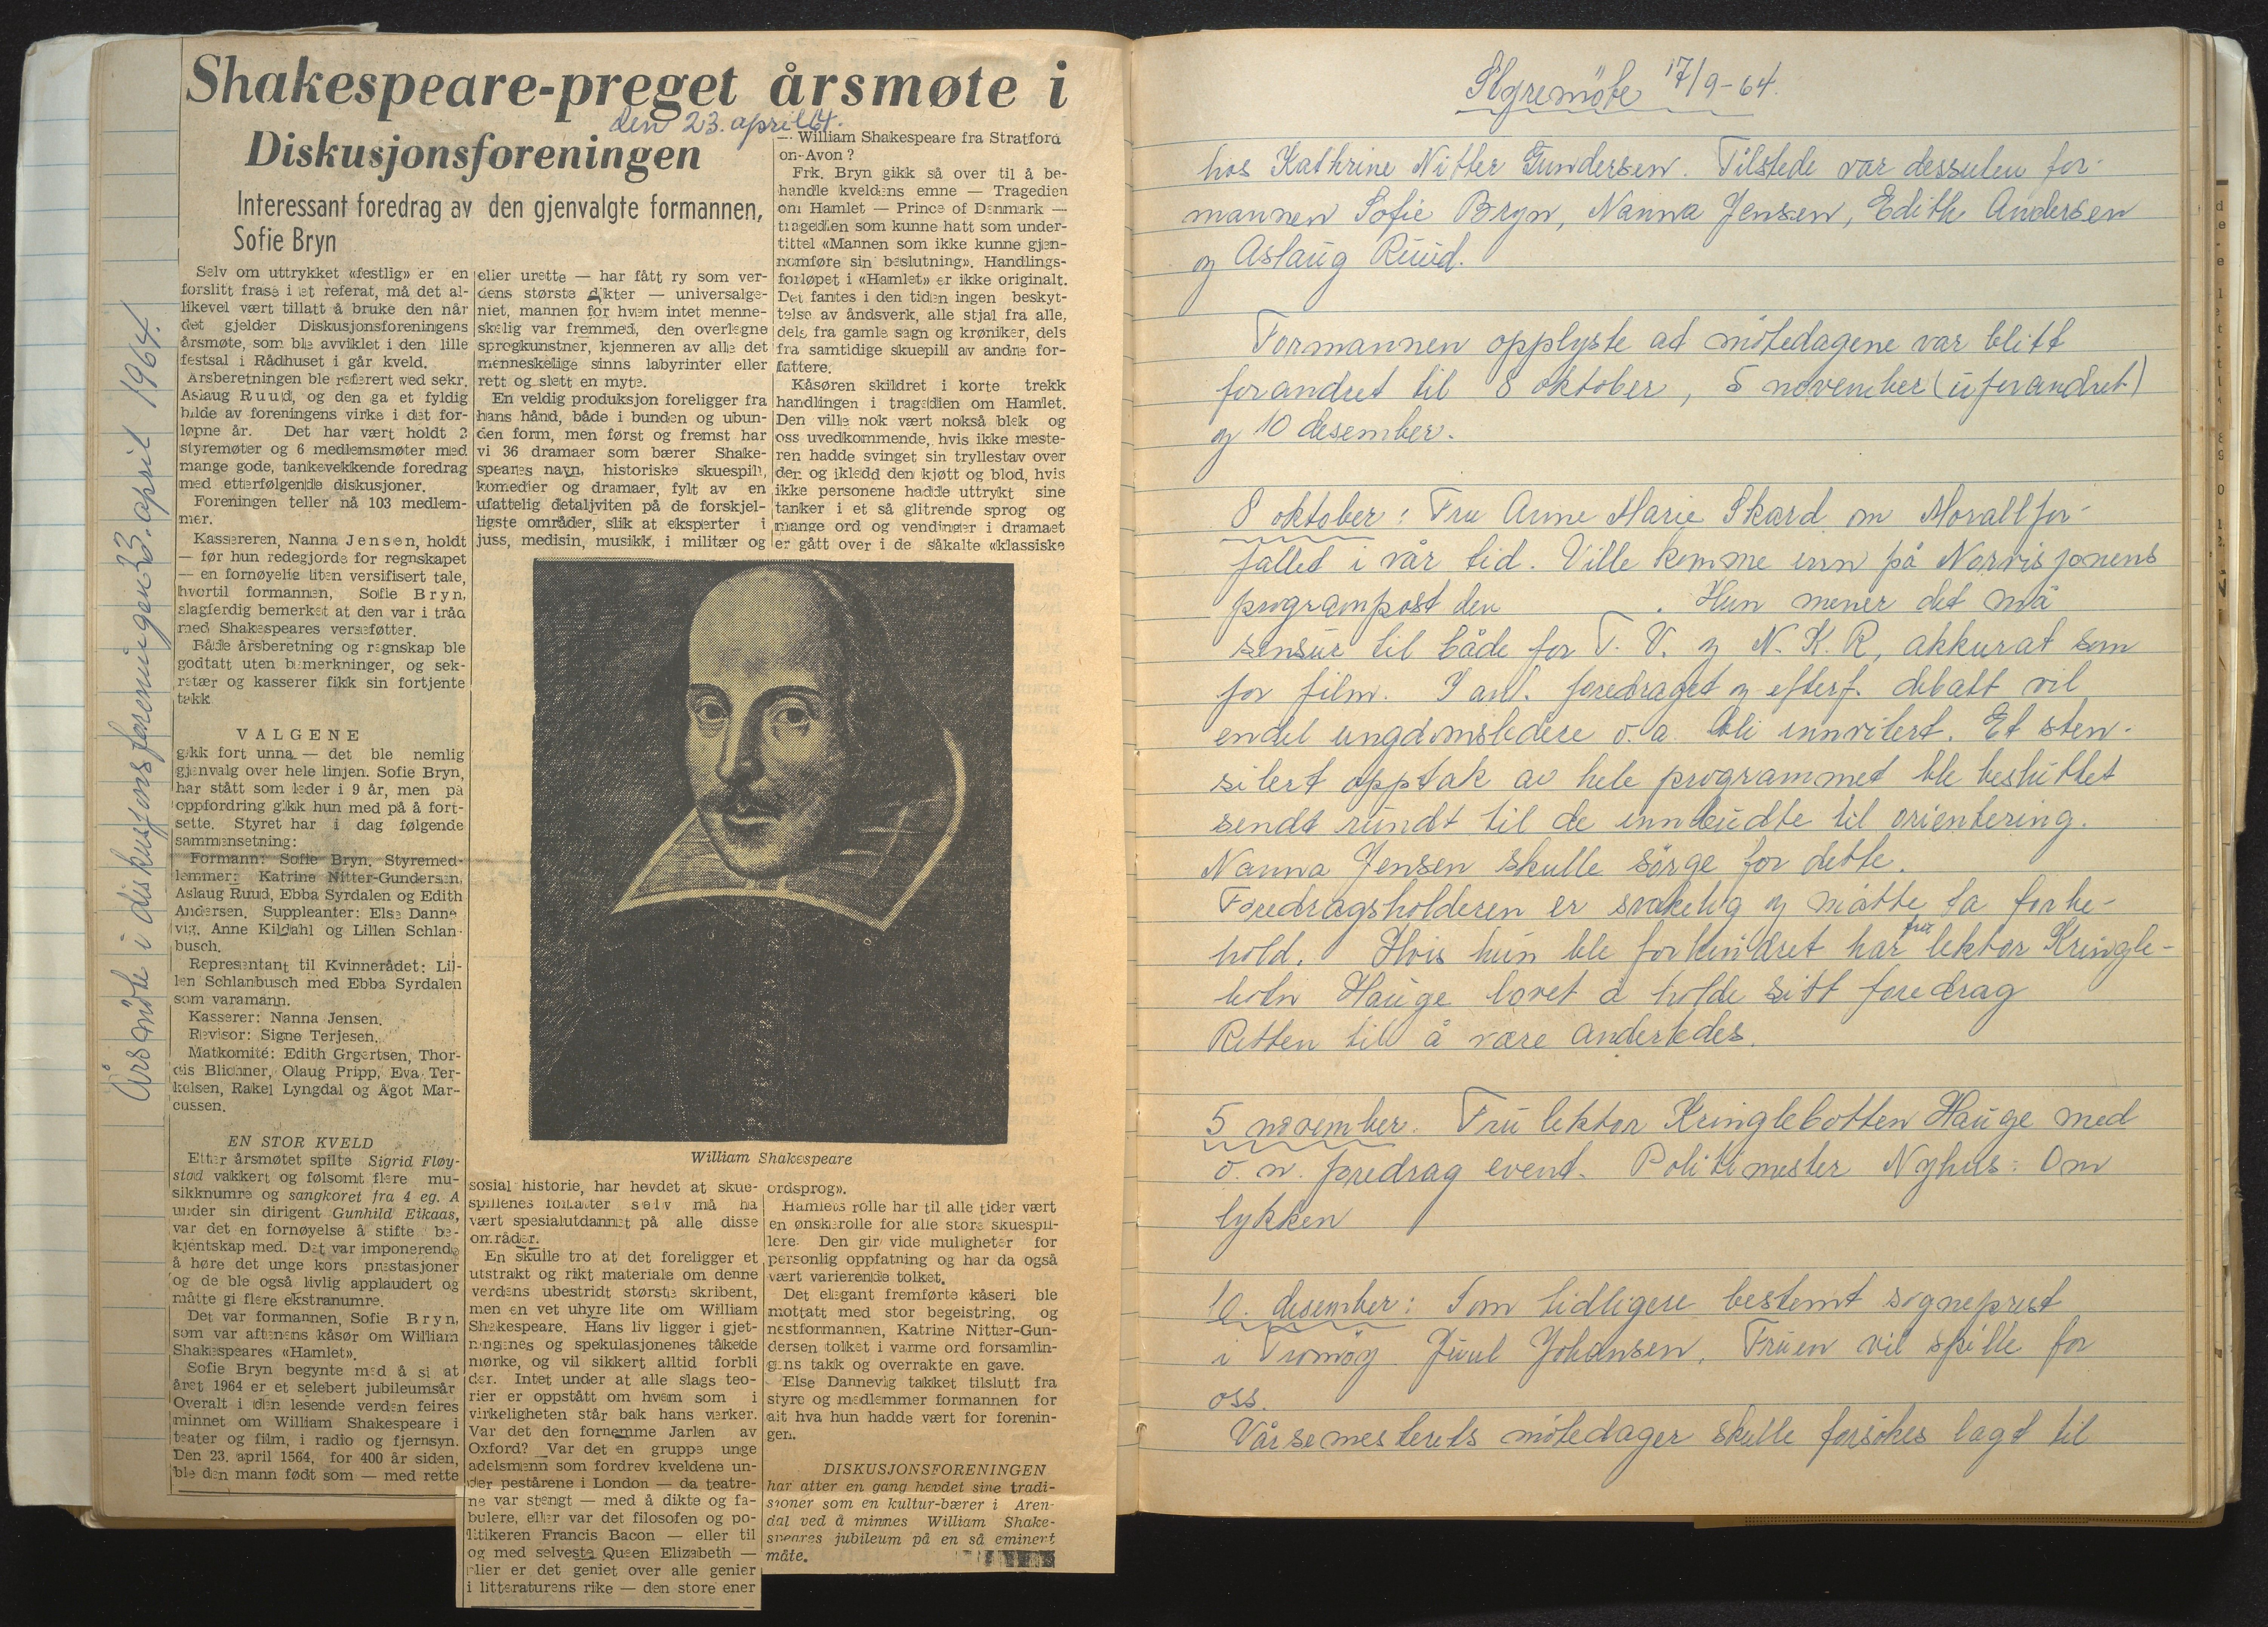 Årsmöte i diskusjonsforeningen 23. april 1964.
Shakespeare-preget årsmøte i
den 23. april 64.
Diskusjonsforeningen
Interessant foredrag av den gjenvalgte formannen,
Sofie Bryn
Selv om uttrykket «festlig» er en
forslitt frase i et referat, må det al-
likevel vært tillatt å bruke den når
det gjelder Diskusjonsforeningens
årsmøte, som ble avviklet i den lille
festsal i Rådhuset i går kveld.
Årsberetningen ble referert ved sekr.
Aslaug Ruud, og den ga et fyldig
bilde av foreningens virke i det for-
løpne år. Det har vært holdt 2
styremøter og 6 medlemsmøter med
mange gode, tankevekkende foredrag
med etterfølgende diskusjoner.
Foreningen teller nå 103 medlem-
mer.
Kassereren, Nanna Jensen, holdt
— før hun redegjorde for regnskapet
— en fornøyelig liten versifisert tale,
hvortil formannen, Sofie Bryn,
slagferdig bemerket at den var i tråd
med Shakespeares versføtter.
Både årsberetning og regnskap ble
godtatt uten bemerkninger, og sek-
retær og kasserer fikk sin fortjente
takk
VALGENE
gikk fort unna — det ble nemlig
gjenvalg over hele linjen. Sofie Bryn,
har stått som leder i 9 år, men på
oppfordring gikk hun med på å fort-
sette. Styret har i dag følgende
sammensetning:
Formann: Sofie Bryn. Styremed-
lemmer: Katrine Nitter-Gundersen,
Aslaug Ruud, Ebba Syrdalen og Edith
Andersen. Suppleanter: Else Danne
vig, Anne Kildahl og Lillen Schlan-
busch.
Representant til Kvinnerådet: Lil-
len Schlanbusch med Ebba Syrdalen
som varamann.
Kasserer: Nanna Jensen.
Revisor: Signe Terjesen.
Matkomité: Edith Grgertsen, Thor-
dis Blichner, Olaug Pripp, Eva Ter-
kelsen, Rakel Lyngdal og Ågot Mar-
cussen.
EN STOR KVELD
Etter årsmøtet spilte Sigrid Fløy-
stad vakkert og følsomt flere mu-
sikknumre og sangkoret fra 4 eg. A
under sin dirigent Gunhild Eikaas,
var det en fornøyelse å stifte be-
kjentskap med. Det var imponerende
å høre det unge kors prestasjoner
og de ble også livlig applaudert og
måtte gi flere ekstranumre.
Det var formannen, Sofie Bryn,
som var aftenens kåsør om William
Shakespeares «Hamlet».
Sofie Bryn begynte med å si at
året 1964 er et selebert jubileumsår
Overalt i den lesende verden feires
minnet om William Shakespeare i
teater og film, i radio og fjernsyn.
Den 23. april 1564, for 400 år siden,
ble den mann født som — med rette
eller urette — har fått ry som ver-
dens største dikter — universalge-
niet, mannen for hvem intet menne-
skelig var fremmed, den overlegne
sprogkunstner, kjenneren av alle det
menneskelige sinns labyrinter eller
rett og slett en myte.
En veldig produksjon foreligger fra
hans hånd, både i bunden og ubun-
den form, men først og fremst har
vi 36 dramaer som bærer Shake-
speares navn, historiske skuespill,
komedier og dramaer, fylt av en
ufattelig detaljviten på de forskjel-
ligste områder, slik at eksperter i
juss, medisin, musikk, i militær og
William Shakespeare
sosial historie, har hevdet at skue-
spillenes forfatter selv må ha
vært spesialutdannet på alle disse
områder.
En skulle tro at det foreligger et
utstrakt og rikt materiale om denne
verdens ubestridt største skribent,
men en vet uhyre lite om William
Shakespeare. Hans liv ligger i gjet-
ningenes og spekulasjonenes tåkede
mørke, og vil sikkert alltid forbli
der. Intet under at alle slags teo-
rier er oppstått om hvem som i
virkeligheten står bak hans verker.
Var det den fornemme Jarlen av
Oxford? Var det en gruppe unge
adelsmenn som fordrev kveldene un-
der pestårene i London — da teatre-
ne var stengt — med å dikte og fa-
bulere, eller var det filosofen og po-
litikeren Francis Bacon — eller til
og med selveste Queen Elizabeth —
eller er det geniet over alle genier
i litteraturens rike — den store ener
— William Shakespeare fra Stratford
on-Avon?
Frk. Bryn gikk så over til å be-
handle kveldens emne — Tragedien
om Hamlet — Prince of Denmark —
tragedien som kunne hatt som under-
tittel «Mannen som ikke kunne gjen-
nomføre sin beslutning». Handlings-
forløpet i «Hamlet» er ikke originalt.
Det fantes i den tiden ingen beskyt-
telse av åndsverk, alle stjal fra alle,
dels fra gamle sagn og krøniker, dels
fra samtidige skuepill av andre for-
fattere.
Kåsøren skildret i korte trekk
handlingen i tragedien om Hamlet.
Den ville nok vært nokså blek og
oss uvedkommende, hvis ikke meste-
ren hadde svinget sin tryllestav over
den og ikledd den kjøtt og blod, hvis
ikke personene hadde uttrykt sine
tanker i et så glitrende sprog og
mange ord og vendinger i dramaet
er gått over i de såkalte «klassiske
ordsprog».
Hamlets rolle har til alle tider vært
en ønskerolle for alle store skuespil-
lere. Den gir vide muligheter for
personlig oppfatning og har da også
vært varierende tolket.
Det elegant fremførte kåseri ble
mottatt med stor begeistring, og
nestformannen, Katrine Nitter-Gun-
dersen tolket i varme ord forsamlin-
gens takk og overrakte en gave.
Else Dannevig takket tilslutt fra
styre og medlemmer formannen for
alt hva hun hadde vært for forenin-
gen.
DISKUSJONSFORENINGEN
har atter en gang hevdet sine tradi-
sjoner som en kultur-bærer i Aren-
dal ved å minnes William Shake-
speares jubileum på en så eminent
måte.
Styremöte 17/9-64.
hos Kathrine Nitter Gundersen. Tilstede var dessuten for-
mannen Sofie Bryn, Nanna Jensen, Edith Andersen
og Aslaug Ruud.
Formannen opplyste at mötedagene var blitt
forandret til 8 oktober, 5 november (uforandret)
og 10 desember.
8 oktober: Fru Anne Marie Skard om Morallfor-
fallet i vår tid. Ville komme inn på Norvisjonens
programpost den . Hun mener det må
sensur til både for T.V. og N.K.R, akkurat som
for film. I anl. foredraget og efterf. debatt vil
endel ungdomsledere o.a. bli innvitert. Et sten-
silert opptak av hele programmet ble besluttet
sendt rundt til de innbudte til orientering.
Nanna Jensen skulle sörge for dette.
Foredragsholderen er svakelig og måtte ta forbe-
hold. Hvis hun ble forhindret har fru lektor Kringle-
botn Hauge lovet å holde sitt foredrag
Retten til å være anderledes.
5 november. Fru lektor Kringlebotten Hauge med
o.n. foredrag event. Politimester Nyhus: Om
lykken
10. desember: Som tidligere bestemt sogneprest
i Tromöy Juul Johansen. Fruen vil spille for
oss.
Vårsemesterets mötedager skulle forsökes lagt til